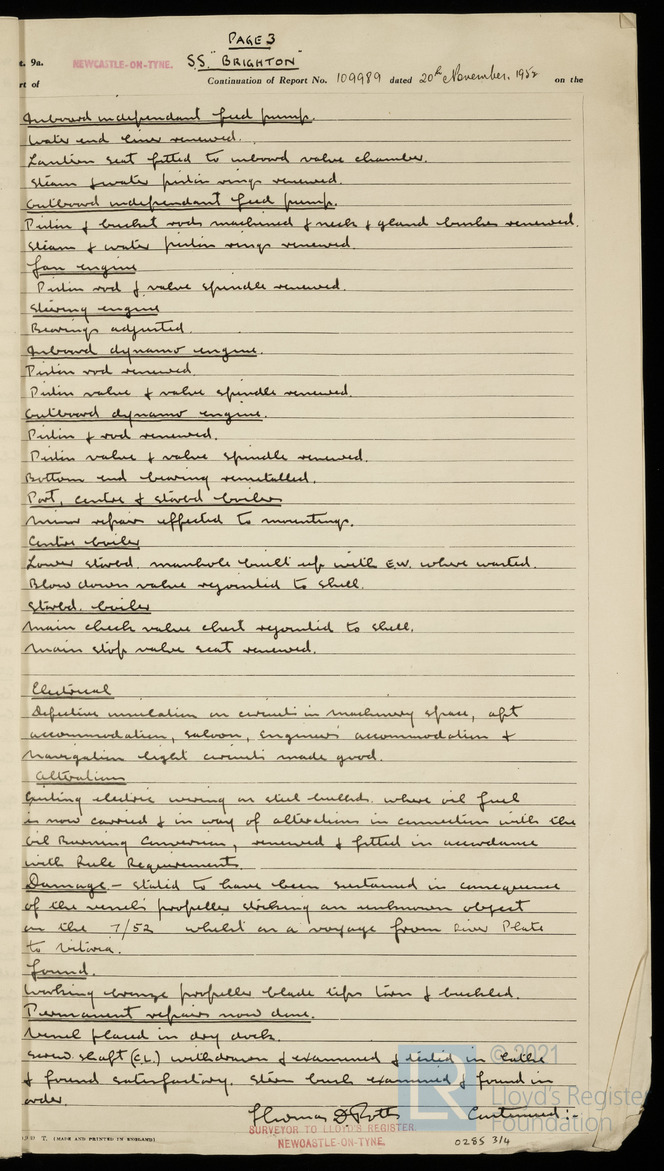 PAGE 3
t. 9a. NEWCASTLE-ON-TYNE. SS. "BRIGHTON"
rt of Continuation of Report No. 109989 dated 20th November, 1952 on the
Inboard independant feed pump.
Water end liner renewed.
Lantern seat fitted to inboard valve chamber.
Steam & water piston rings renewed.
Outboard independant feed pump.
Piston & bucket rods machined & neck & gland bushes renewed.
Steam & water piston rings renewed.
Fan engine
Piston rod & valve spindle renewed.
Steering engine
Bearings adjusted.
Inboard dynamo engine.
Piston rod renewed
Piston valve & valve spindle renewed.
Outboard dynamo engine.
Piston & rod renewed.
Piston valve & valve spindle renewed.
Bottom end bearing remetalled.
Port, centre & starbd boilers
Minor repairs effected to mountings.
Centre boiler
Lower starbd. manhole built up with E.W. where wasted.
Blow down valve rejointed to shell.
Starbd. boiler
Main check valve chest rejointed to shell.
Main stop valve seat renewed.
Electrical
Defective insulation on circuits in machinery space, aft
accommodation, saloon, engineers accommodation &
navigation light circuits made good.
Alterations
Existing electric wiring on steel bulkhds. where oil fuel
is now carried & in way of alterations in connection with the
Oil Burning Conversion, renewed & fitted in accordance
with Rule Requirements.
Damage - stated to have been sustained in consequence
of the vessel's propeller striking an unknown object
on the 7/52 whilst on a voyage from River Plate
to Vitoria.
Found.
Working bronze propeller blade tips torn & buckled.
Permanent repairs now done.
Vessel placed in dry dock.
Screw shaft (C.L.) withdrawn & examined & tested in lathe
& found satisfactory. Stern bush examined & found in
order.
Thomas D. Potts Continued:-
SURVEYOR TO LLOYD'S REGISTER.
NEWCASTLE-ON-TYNE.
T. (MADE AND PRINTED IN ENGLAND)
0285 3/4
© 2021
LR
Lloyd's Register
Foundation